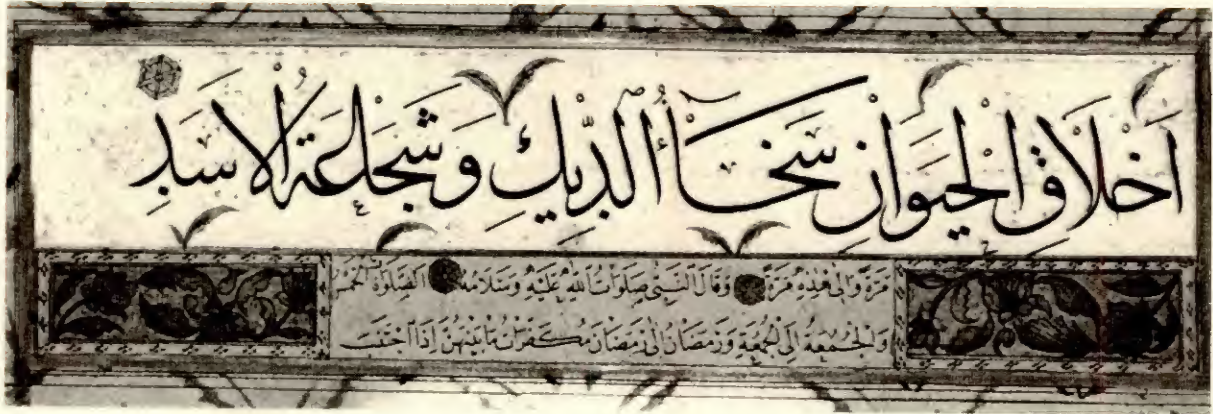 اَخْلَاقِ الْحَيَوَانِ سَخَآءُ الدِّيْكِ وَشَجَاعَةُ الْاَسَدِ
مَرَّةً وَاِلٰى هٰذِهٖ مَرَّةً وَقَالَ النَّبِىُّ صَلَوَاتُ اللّٰهِ عَلَيْهِ وَسَلَامُهُ الصَّلَوٰةُ الْخَمْسُ
وَالْجُمُعَةُ اِلَى الْجُمُعَةِ وَرَمَضَانُ اِلٰى رَمَضَانَ مُكَفِّرَاتُ مَا بَيْنَهُنَّ اِذَا اجْتَنَبَ